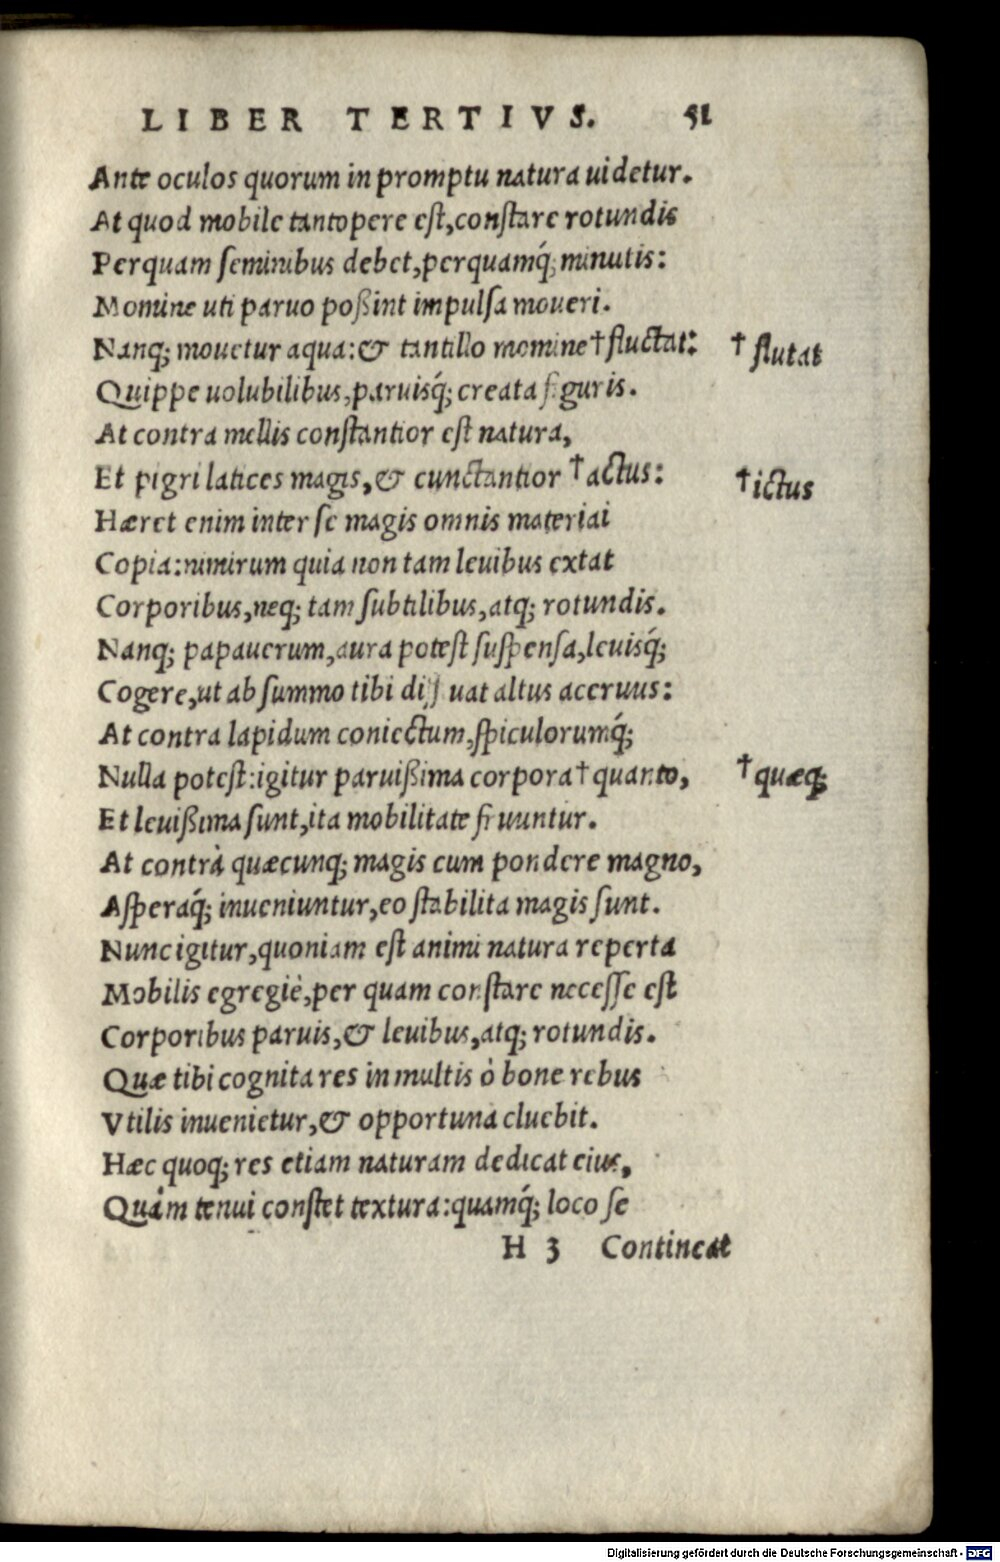 LIBER TERTIVS. 51
Ante oculos quorum in promptu natura uidetur.
At quod mobile tantopere eſt,conſtare rotundis
Perquam ſeminibus debet,perquamq́; minutis:
Momine uti paruo poßint impulſa moueri.
Nanq; mouetur aqua:& tantillo momine†fluctat: † flutat
Quippe uolubilibus,paruisq́; creata figuris.
At contra mellis conſtantior eſt natura,
Et pigri latices magis,& cunctantior †actus: †ictus
Hæret enim inter ſe magis omnis materiai
Copia:nimirum quia non tam leuibus extat
Corporibus,neq; tam ſubtilibus,atq; rotundis.
Nanq; papauerum,aura poteſt ſuſpenſa,leuisq́;
Cogere,ut ab ſummo tibi diſſuat altus aceruus:
At contra lapidum coniectum,ſpiculorumq́;
Nulla poteſt:igitur paruißima corpora†quanto, †quæq;
Et leuißima ſunt,ita mobilitate fruuntur.
At contrà quæcunq; magis cum pondere magno,
Aſperaq́; inueniuntur,eo ſtabilita magis ſunt.
Nunc igitur,quoniam eſt animi natura reperta
Mobilis egregiè,per quam conſtare neceſſe eſt
Corporibus paruis,& leuibus,atq; rotundis.
Quæ tibi cognita res in multis ò bone rebus
Vtilis inuenietur,& opportuna cluebit.
Hæc quoq; res etiam naturam dedicat eius,
Quàm tenui conſtet textura:quamq́; loco ſe
H 3 Contineat
Digitalisierung gefördert durch die Deutsche Forschungsgemeinschaft - DFG